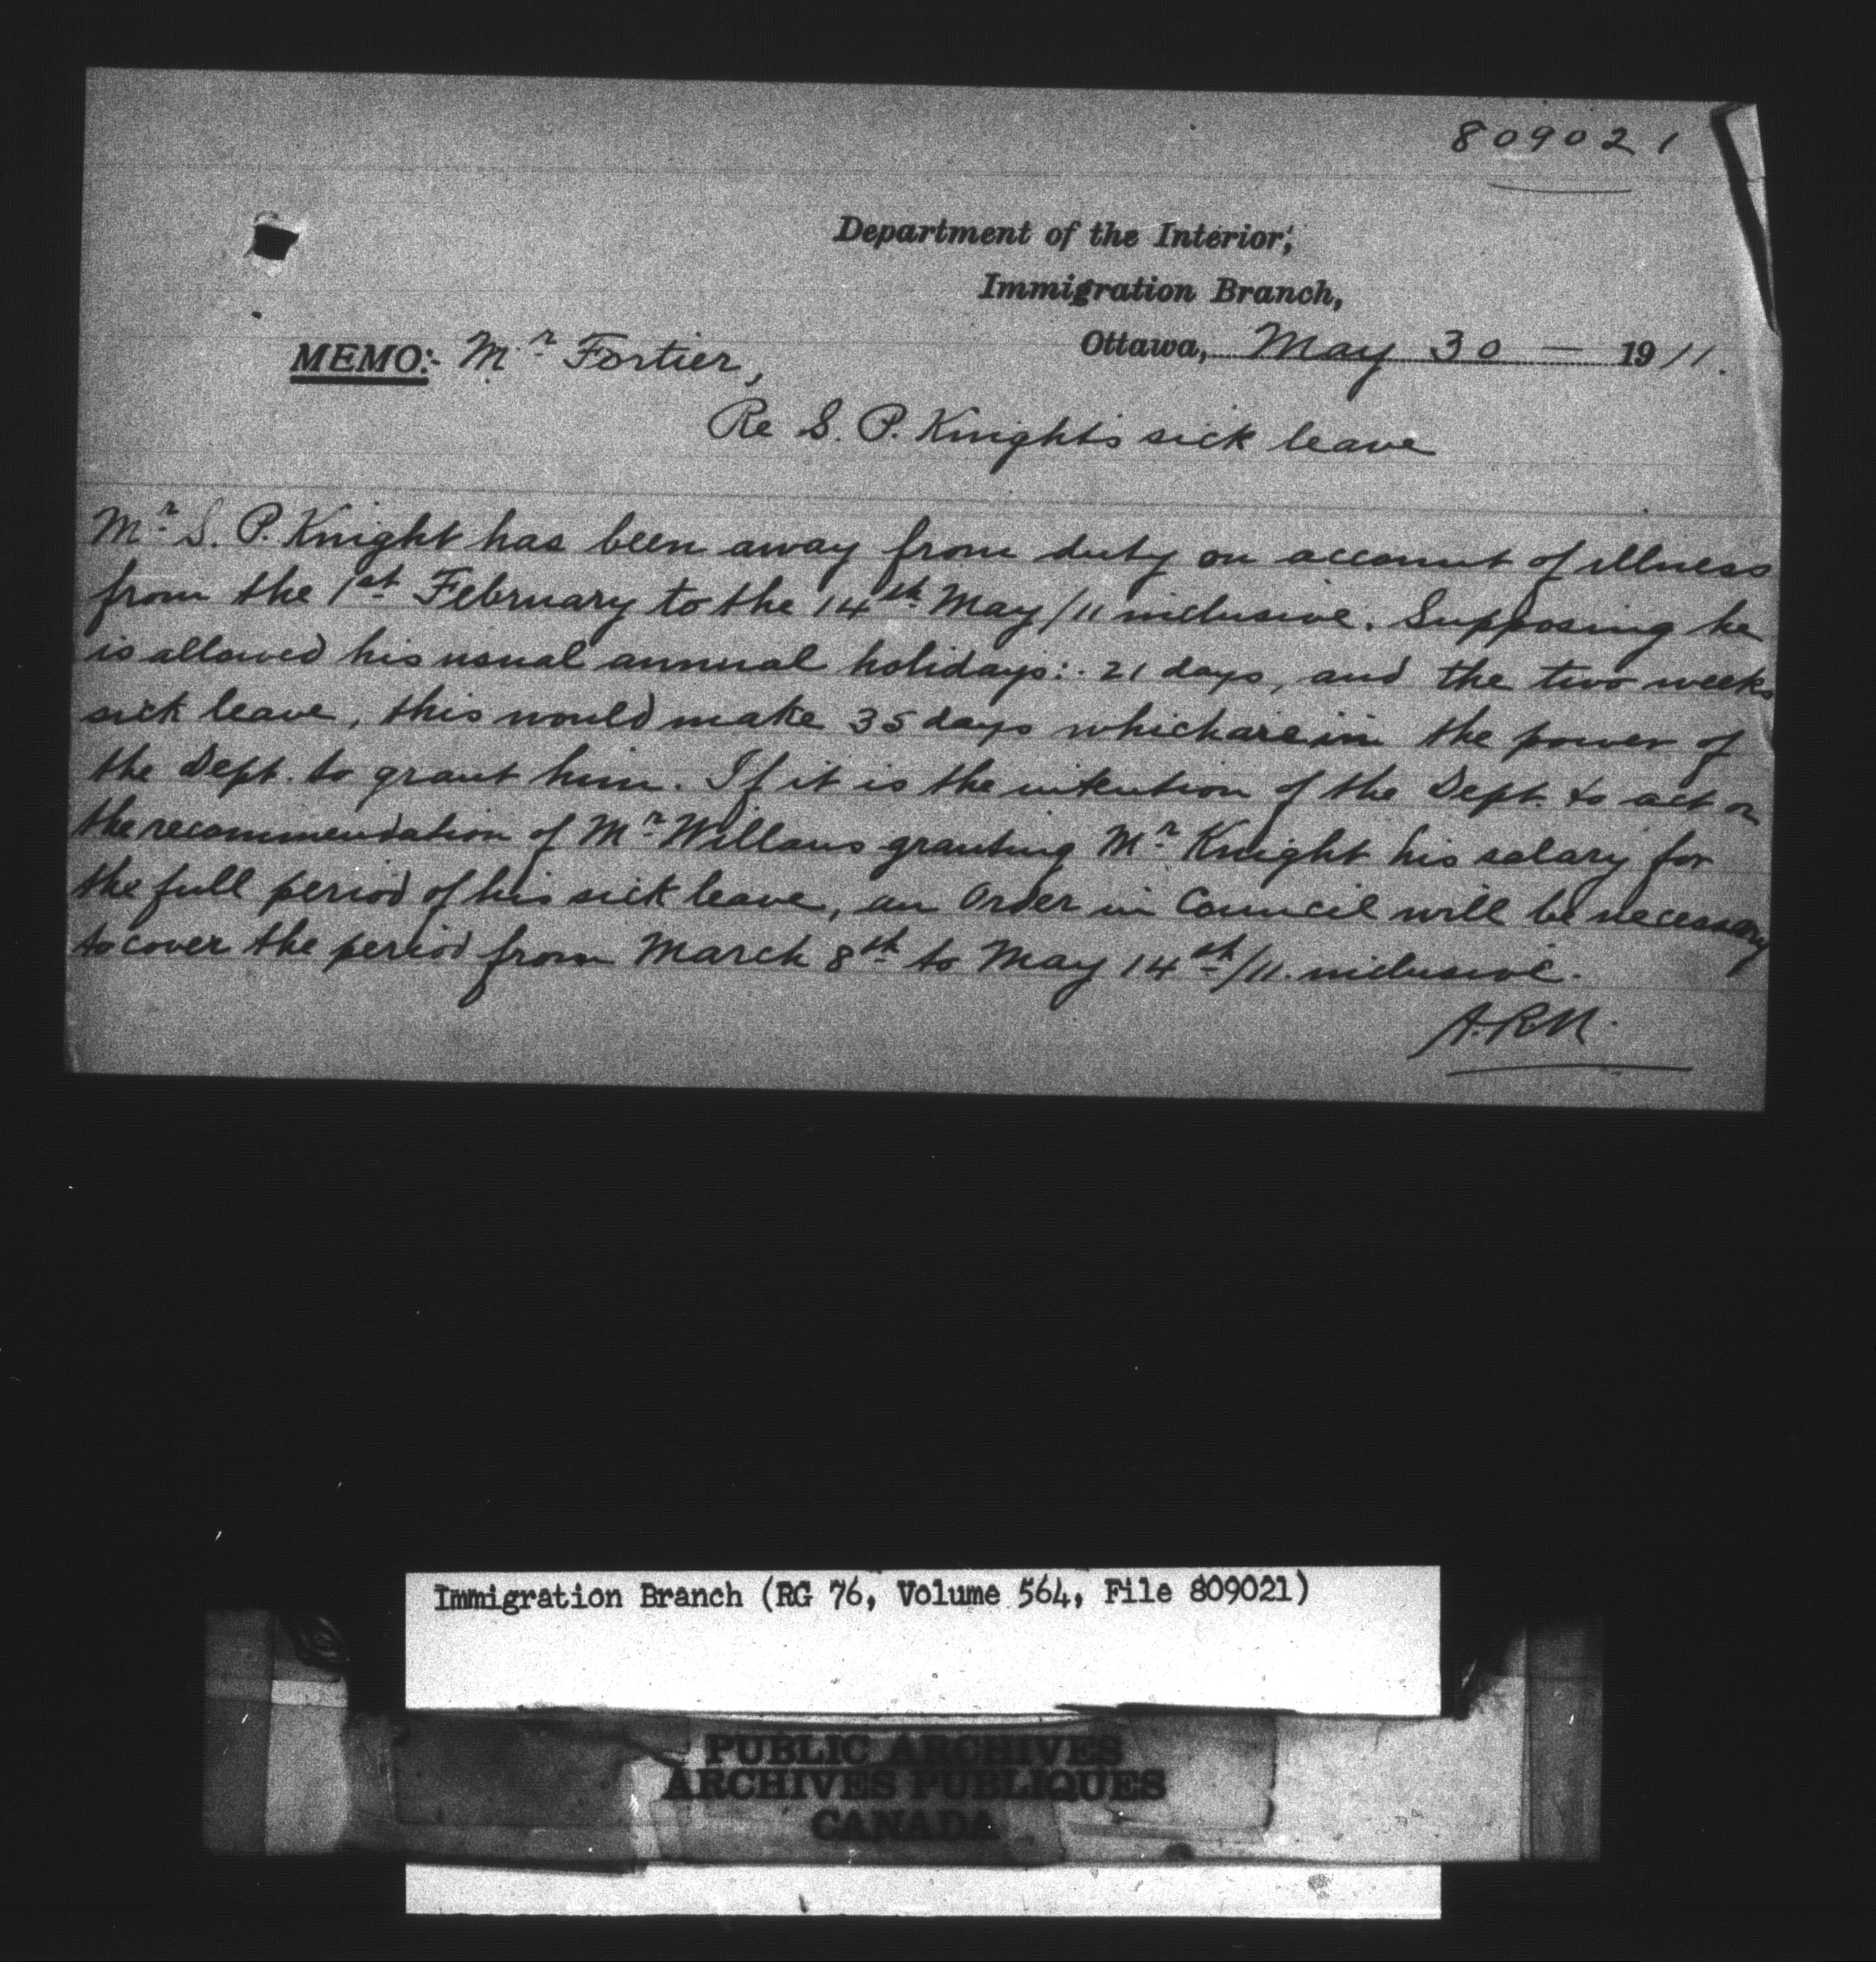 809021
Department of the Interior,
Immigration Branch,
Ottawa, May 30 — 1911.
MEMO:- Mr Fortier,
Re S. P. Knight's sick leave
Mr S. P. Knight has been away from duty on account of illness
from the 1st February to the 14th May/11 inclusive. Supposing he
is allowed his usual annual holidays:. 21 days, and the two weeks
sick leave, this would make 35 days which are in the power of
the Dept. to grant him. If it is the intention of the Dept. to act on
the recommendation of Mr Willans granting Mr Knight his salary for
the full period of his sick leave, an Order in Council will be necessary
to cover the period from March 8th to May 14th/11. inclusive.
A.R.M.
Immigration Branch (RG 76, Volume 564, File 809021)
PUBLIC ARCHIVES
ARCHIVES PUBLIQUES
CANADA